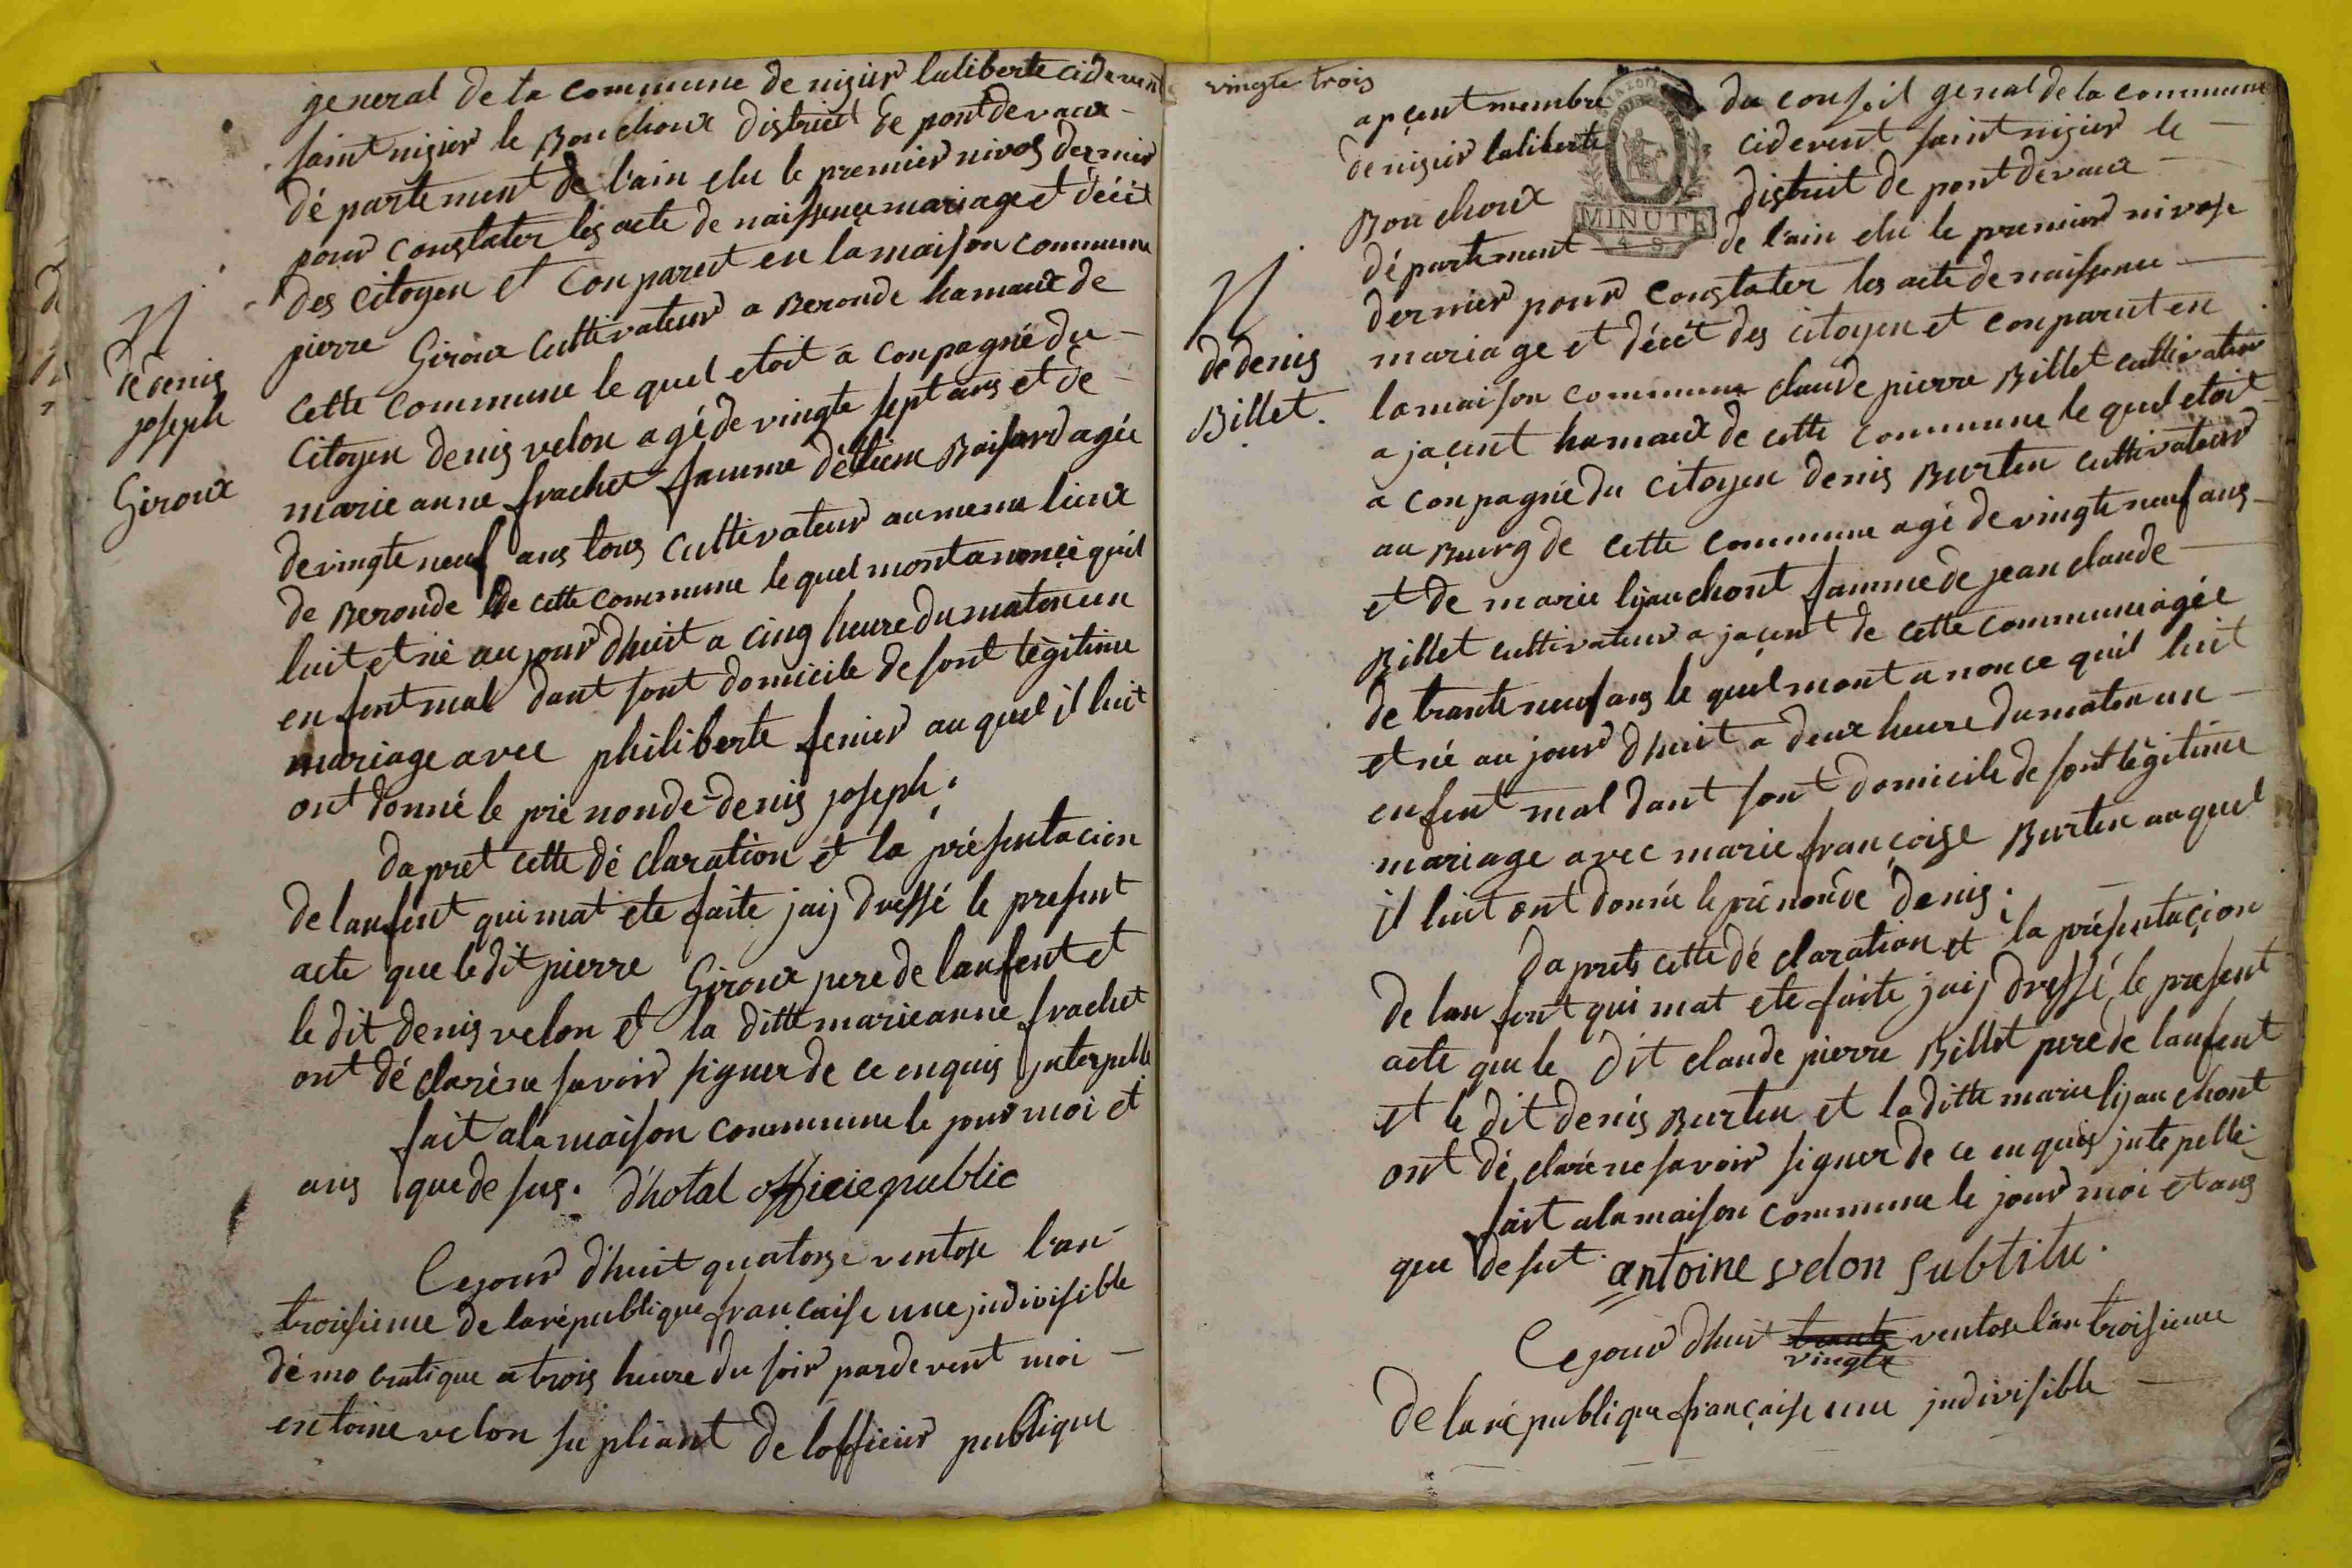 general de la commune de nisier laliberte cidevent
saint nisier le Bouchoux district de pont de vaux
département de l'ain elu le premier nivos dernier
pour constater les acte de naissence mariage et décét
des citoyen et conparut en la maison commune
pierre Giroux Cultivateur a Beronde hamaux de
cette commune le quel etoit a conpagné du
Citoyen denis velon agé de vingte sept ans et de
marie anne frachet famme détiene Boisard agée
de vingte neuf ans tous Cultivateur au meme lieux
de Beronde de cette commune le quel mont anoncé quil
luit et né au jour dhuit a cinq heure du maten un
enfent mal dant sont domicile de sont légitime
mariage avec philiberte fenier au quel il luit
ont donné le pré nonde denis joseph.
dapret cette dé claration et la présentacion
de lanfent qui mat ete faite jaij dressé le present
acte que le dit pierre Giroux pere de lanfent et
le dit denis velon et la ditte marieanne frachet
ont dé claré ne savoir signer de ce enquis jnterpellé
fait ala maison commune le jour moi et
ans que de sus. d'hotal officie public
Cejour d'huit quatorze ventose l'an
troisieme de la république française une jndivisible
démo cratique a trois heure du soir pardevent moi
entoine velon supliant de lofficier publique
N
de denis
joseph
Giroux
vingte trois
apçent membre du conseil genal de la commune
de nisier laliberte cidevent saint nisier le
Bouchoux district de pont de vaux
MINUTE
4 S
département de l'ain elu le premier nivose
dernier pour constater les acte de naissence
mariage et décét des citoyen et conparut en
la maison commune claude pierre Billet cultivateur
a jaçent hamaux de cette commune le quel etoit
a conpagné du citoyen denis Burten cultivateur
au Burg de cette commune agé de vingte neuf ans
et de marie lijauchont famme de jean claude
Billet cultivateur a jaçent de cette commune agée
de trante neuf ans le quel mont anonce quil luit
et né au jour d'huit a deux heure du maten un
enfent mal dant sont domicile de sont légitime
mariage avec marie françoise Burten au quel
il luit ont donné le pré nonde denis.
daprets cette dé claration et la présentaçion
de lan fent qui mat ete faite jaij dressé le present
acte que le dit claude pierre Billet pere de lanfent
et le dit denis Burten et la ditte marie lijauchont
ont dé claré ne savoir signer de ce enquis jntepellé
fait ala maison commune le jour moi et ans
que de sut antoine velon subtitu.
Cejour dhuit trante vingte ventose l'an troisieme
de la république française une jndivisible
N
de denis
Billet.